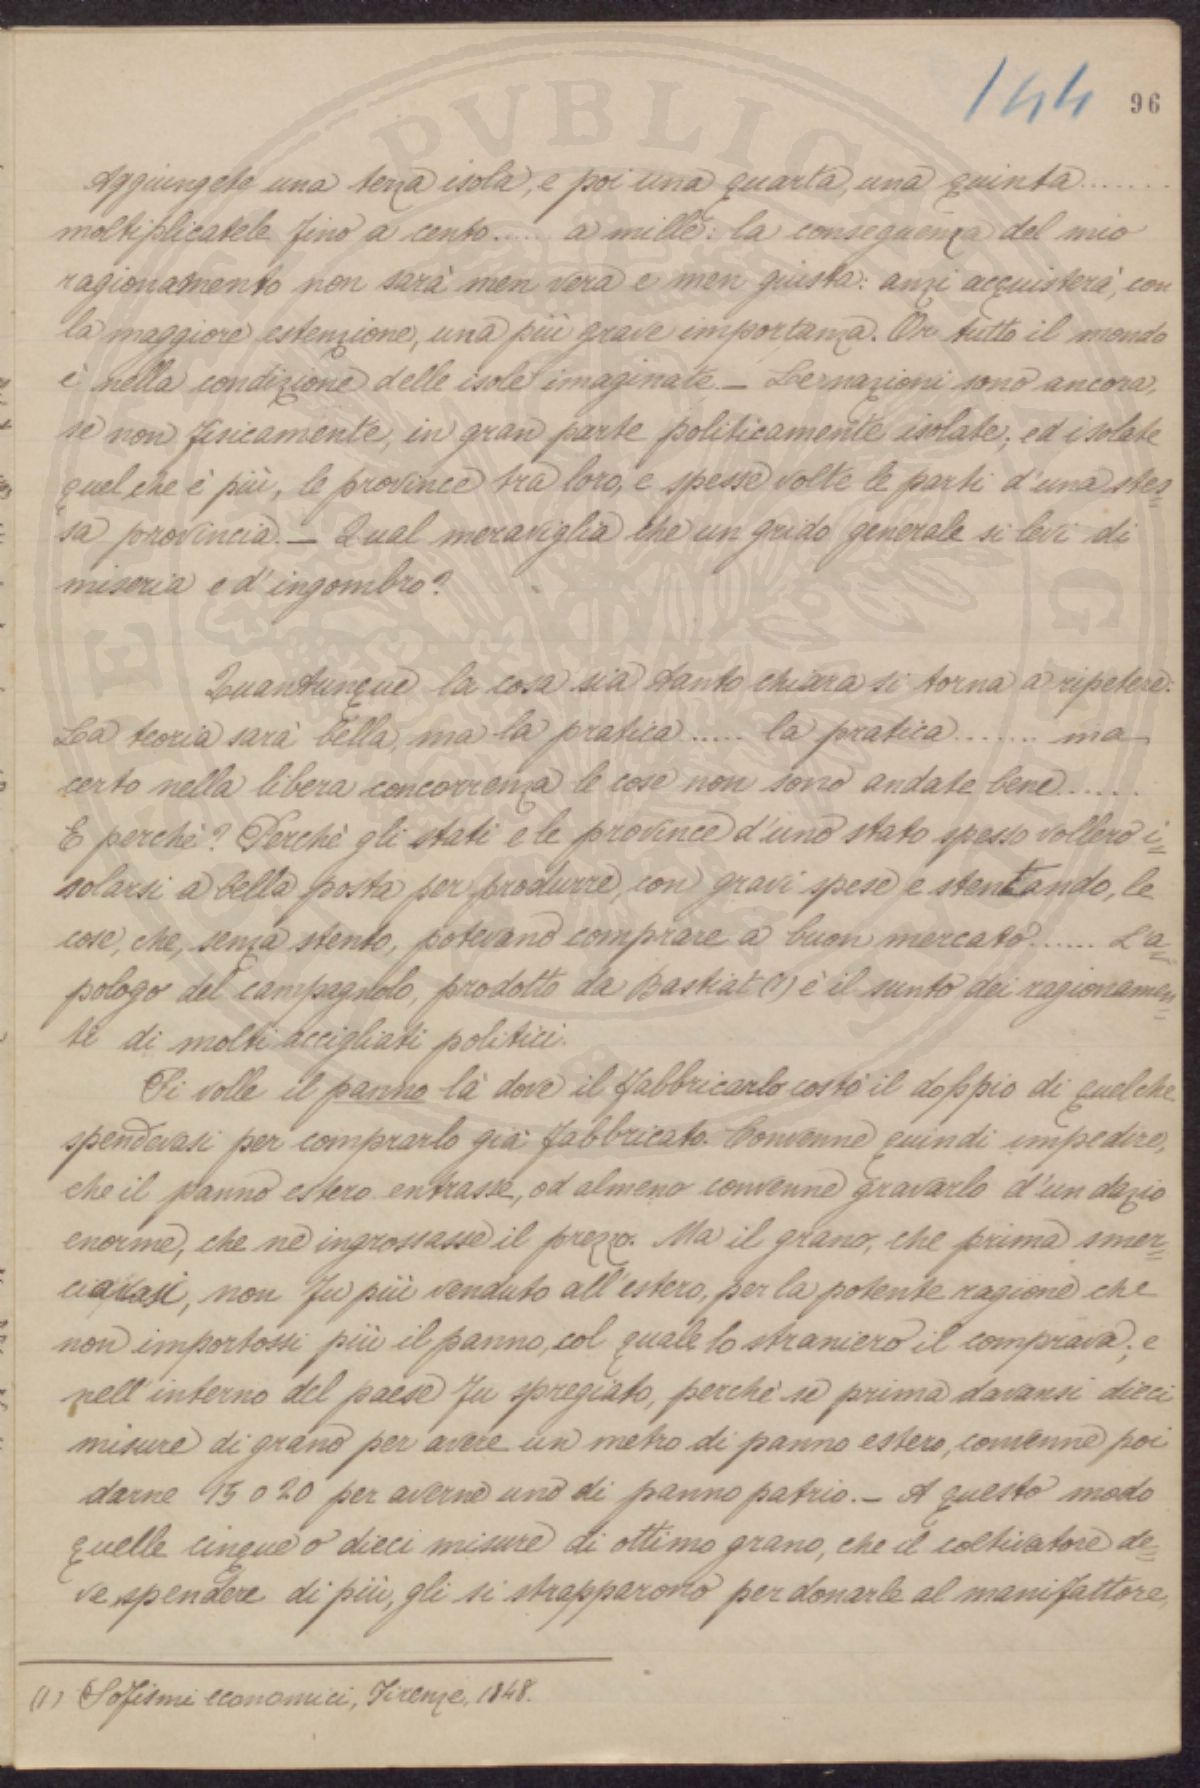 144 96
Aggiungete una terza isola, e poi una quarta, una quinta.......
moltiplicatele fino a cento...... a mille: la conseguenza del mio
ragionamento non sarà men vera e men giusta: anzi acquisterà, con
la maggiore estenzione, una più grave importanza. Or tutto il mondo
è nella condizione delle isole imaginate. — Le nazioni sono ancora,
se non fisicamente, in gran parte politicamente isolate; ed isolate
quel che è più, le province tra loro, e spesse volte le parti d'una stes=
sa provincia. — Qual meraviglia che un grido generale si levi di
miseria e d'ingombro?
Quantunque la cosa sia tanto chiara si torna a ripetere:
La teoria sarà bella, ma la pratica ..... la pratica ....... ma
certo nella libera concorrenza le cose non sono andate bene......
E perchè? Perchè gli stati e le province d'uno stato spesso vollero i=
solarsi a bella posta per produrre, con gravi spese e stentando, le
cose, che, senza stento, potevano comprare a buon mercato...... L'a=
pologo del campagnolo, prodotto da Bastiat (1) è il sunto dei ragionamen=
ti di molti accigliati politici.
Si volle il panno là dove il fabbricarlo costò il doppio di quel che
spendevasi per comprarlo già fabbricato. Convenne quindi impedire,
che il panno estero entrasse, od almeno convenne gravarlo d'un dazio
enorme, che ne ingrossasse il prezzo. Ma il grano, che prima smer=
ciavasi, non fu più venduto all'estero, per la potente ragione che
non importossi più il panno, col quale lo straniero il comprava; e
nell'interno del paese fu spregiato, perchè se prima davansi dieci
misure di grano per avere un metro di panno estero, convenne poi
darne 15 o 20 per averne uno di panno patrio. — A questo modo
quelle cinque o dieci misure di ottimo grano, che il coltivatore de=
ve spendere di più, gli si strapparono per donarle al manifattore,
(1) Sofismi economici, Firenze, 1848.